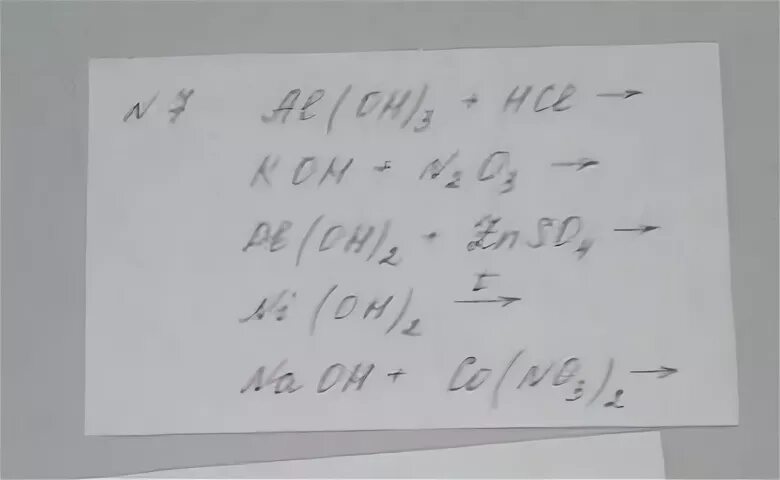 N 7 Al(OH)₃ + HCl →
KOH + N₂O₃ →
Al(OH)₂ + ZnSO₄ →
Ni(OH)₂ t→
NaOH + Co(NO₃)₂ →